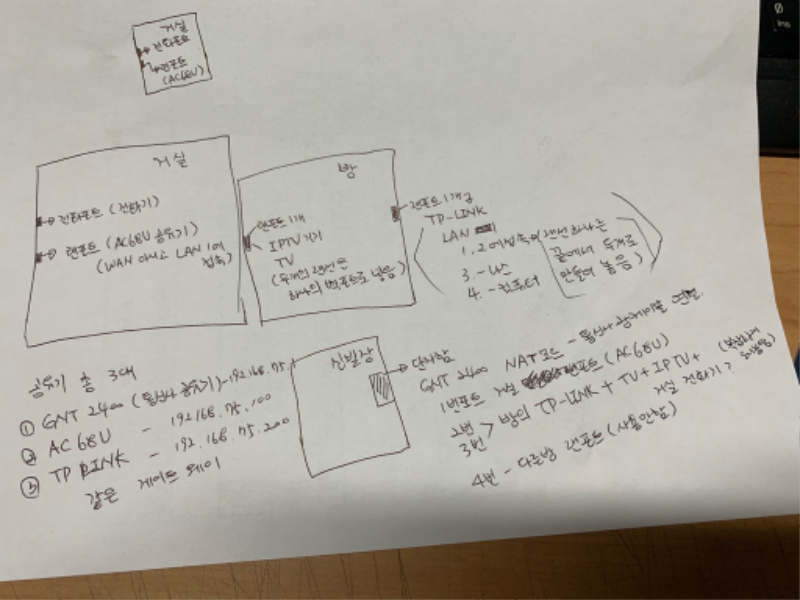 거실
전화포트
랜포트
(AC68U)
거실
전화포트 (전화기)
랜포트 (AC68U 공유기)
(WAN 아니고 LAN 1에
접속)
방
랜포트 1개
IPTV 기기
TV
(두개의 랜선은
하나의 벽포트로 넣음)
랜포트 1개
TP-LINK
LAN
1, 2에 접속의 랜선 하나는
끝에서 두개로
만들어 놓음)
3. - 나스
4. - 컴퓨터
공유기 총 3대
① GNT 2400 (통신사 공유기) - 192.168.75.1
② AC68U - 192.168.75.100
③ TP LINK - 192.168.75.200
같은 게이트 웨이
신발장
단자함
GNT 2400 NAT모드 - 통신사 광케이블 연결
1번포트 거실 랜포트 (AC68U)
2번
3번 > 방의 TP-LINK + TV + IPTV +
거실 전화기?
(복잡하게
4번 - 다른방 랜포트 (사용안함)
0
Ins